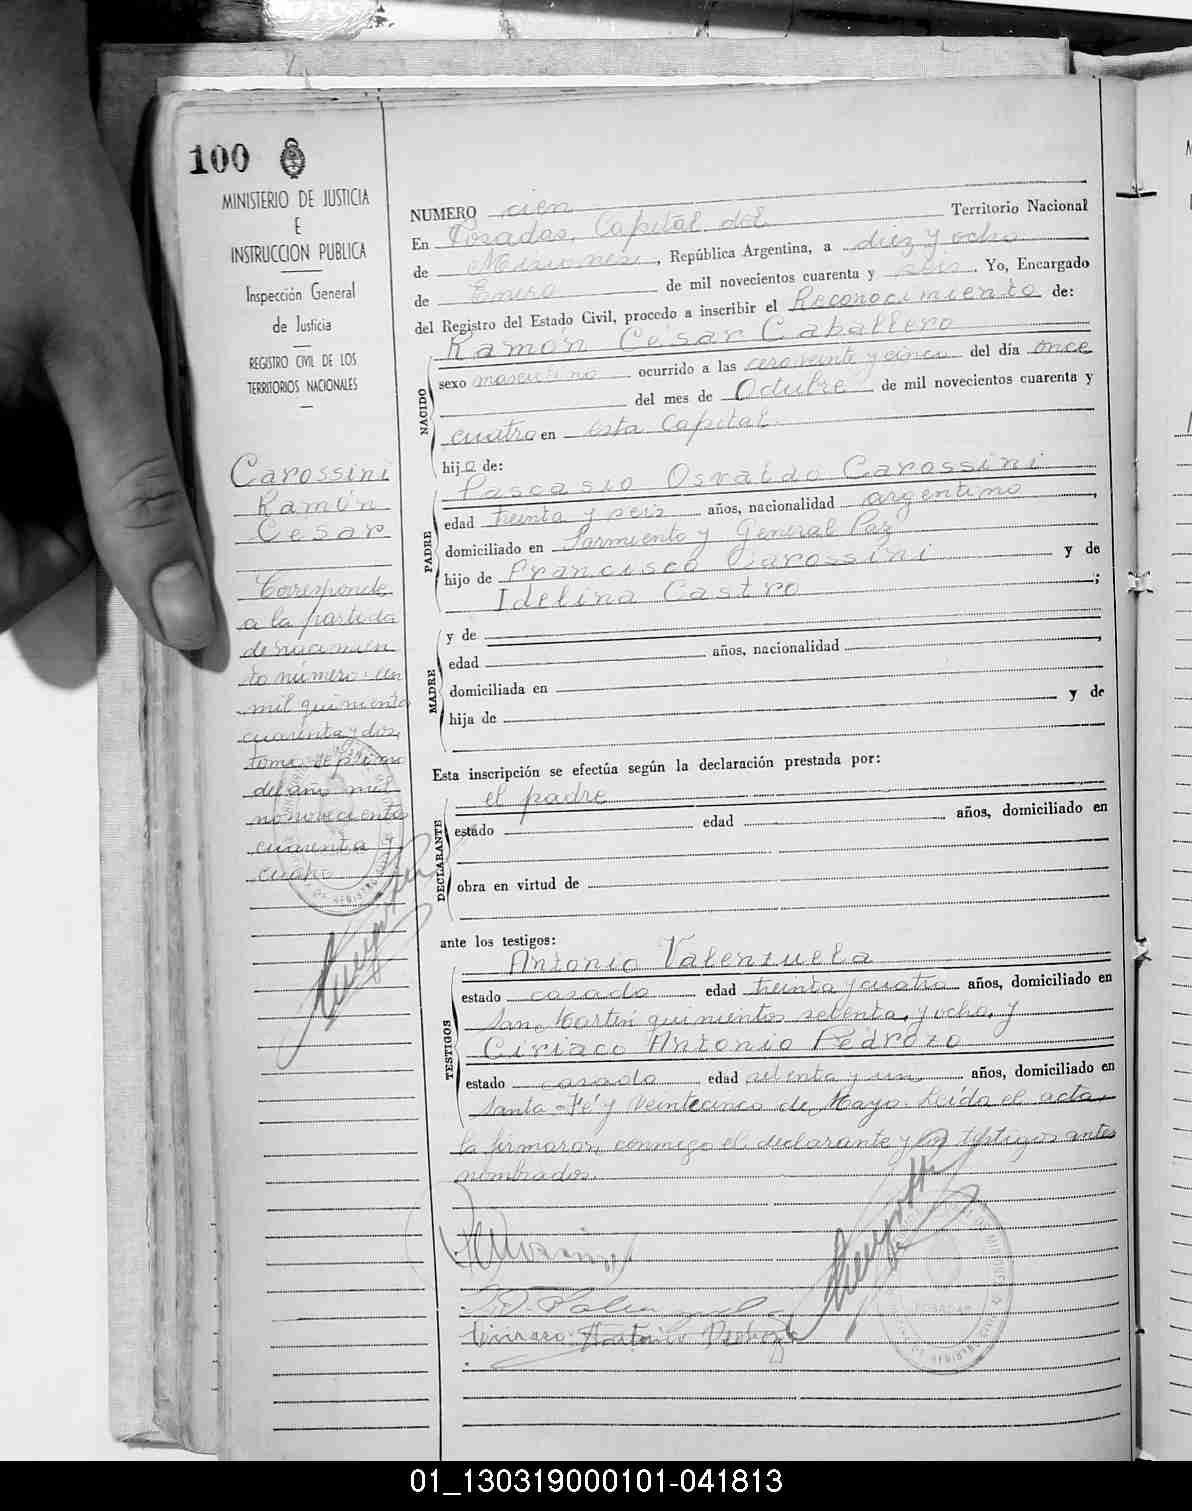 100
MINISTERIO DE JUSTICIA
E
INSTRUCCION PUBLICA
Inspección General
de Justicia
REGISTRO CIVIL DE LOS
TERRITORIOS NACIONALES
Carossini
Ramón
Cesar
Corresponde
a la partida
de nacimien
to número: un
mil quiniento
cuarenta y dos,
tomo septimo
del año mil
novecientos
cuarenta
cuatro
NUMERO cien
En Posadas, Capital del Territorio Nacional
de Misiones, República Argentina, a diez y ocho
de Enero de mil novecientos cuarenta y seis. Yo, Encargado
del Registro del Estado Civil, procedo a inscribir el Reconocimiento de:
Ramón César Caballero
NACIDO
sexo masculino ocurrido a las cero veinte y cinco del día once
del mes de Octubre de mil novecientos cuarenta y
cuatro en esta Capital
hijo de:
PADRE
Pascasio Osvaldo Carossini
edad treinta y seis años, nacionalidad argentino,
domiciliado en Sarmiento y General Paz
hijo de Francisco Carossini y de
Idelina Castro;
MADRE
y de
edad años, nacionalidad,
domiciliada en
hija de y de
Esta inscripción se efectúa según la declaración prestada por:
DECLARANTE
el padre
estado edad años, domiciliado en
obra en virtud de
ante los testigos:
TESTIGOS
Antonio Valenzuela
estado casado edad treinta y cuatro años, domiciliado en
San Martín quinientos setenta y ocho, y
Ciriaco Antonio Pedrozo
estado casado edad setenta y un años, domiciliado en
Santa Fé y Veinticinco de Mayo. Leida el acta,
la firmaron conmigo el declarante y los testigos antes
nombrados.
POSADAS
01_130319000101-041813